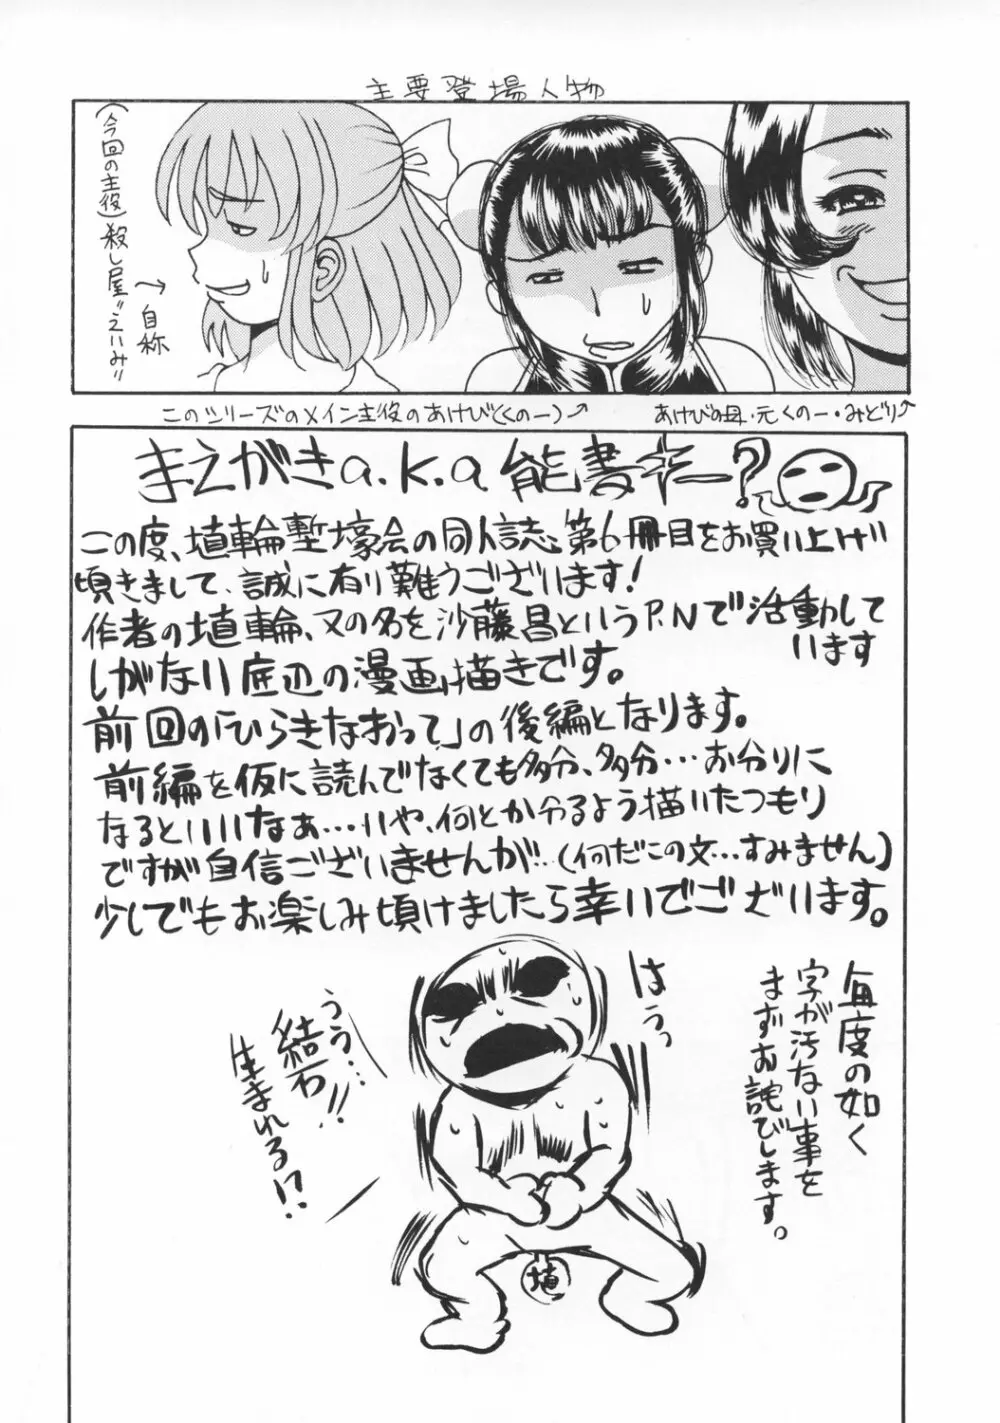 主要登場人物
(今回の主役)殺し屋"えいみ"
→自称
このシリーズのメイン主役のあけび(くのー)↗
あけびの母・元くのー・みどり↗
まえがきa.k.a能書きー?
この度、埴輪塹壕会の同人誌、第6冊目をお買い上げ
頃きまして、誠に有り難うございます!
作者の埴輪、又の名を沙藤昌というP.Nで活動して
います
しがない底辺の漫画描きです。
前回の「ひらきなおって」の後編となります。
前編を仮に読んでなくても多分、多分…お分りに
なるといいなぁ…いや、何とか分るよう描いたつもり
ですが自信ございませんが…(何だこの文…すみません)
少しでもお楽しみ頃けましたら幸いでございます。
毎度の如く
字が汚ない事を
まずお詫びします。
はうっ
うう…
結石!!
生まれる!?
埴